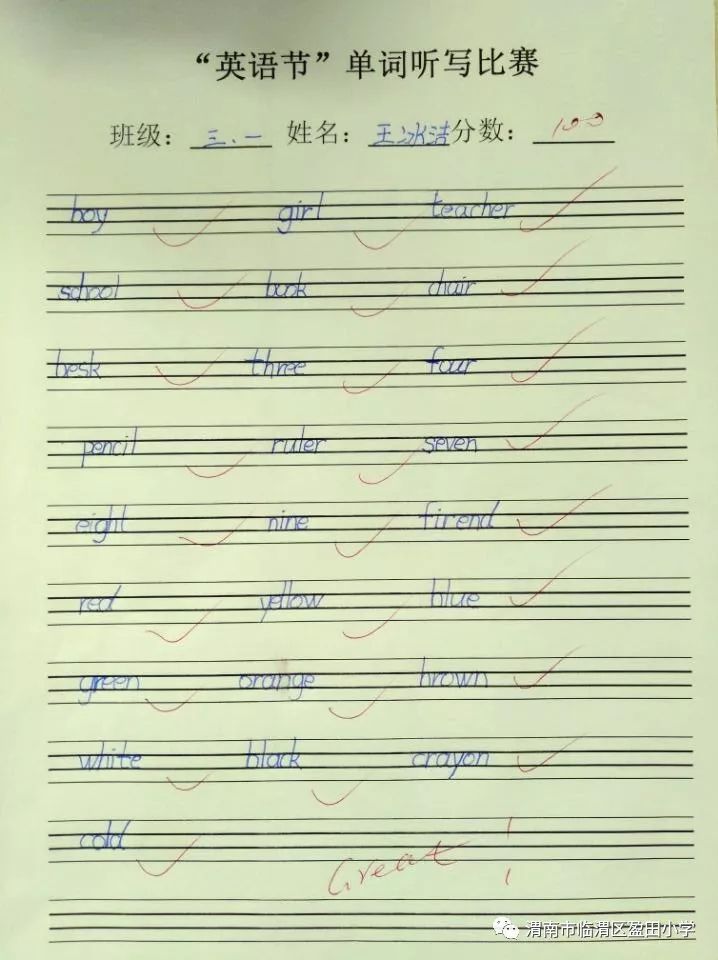 “英语节”单词听写比赛
班级：三.一 姓名：王冰洁 分数：100
boy girl teacher
school book chair
besk three four
pencil ruler seven
eight nine firend
red yellow blue
green orange brown
white black crayon
cold
Great!
渭南市临渭区盈田小学